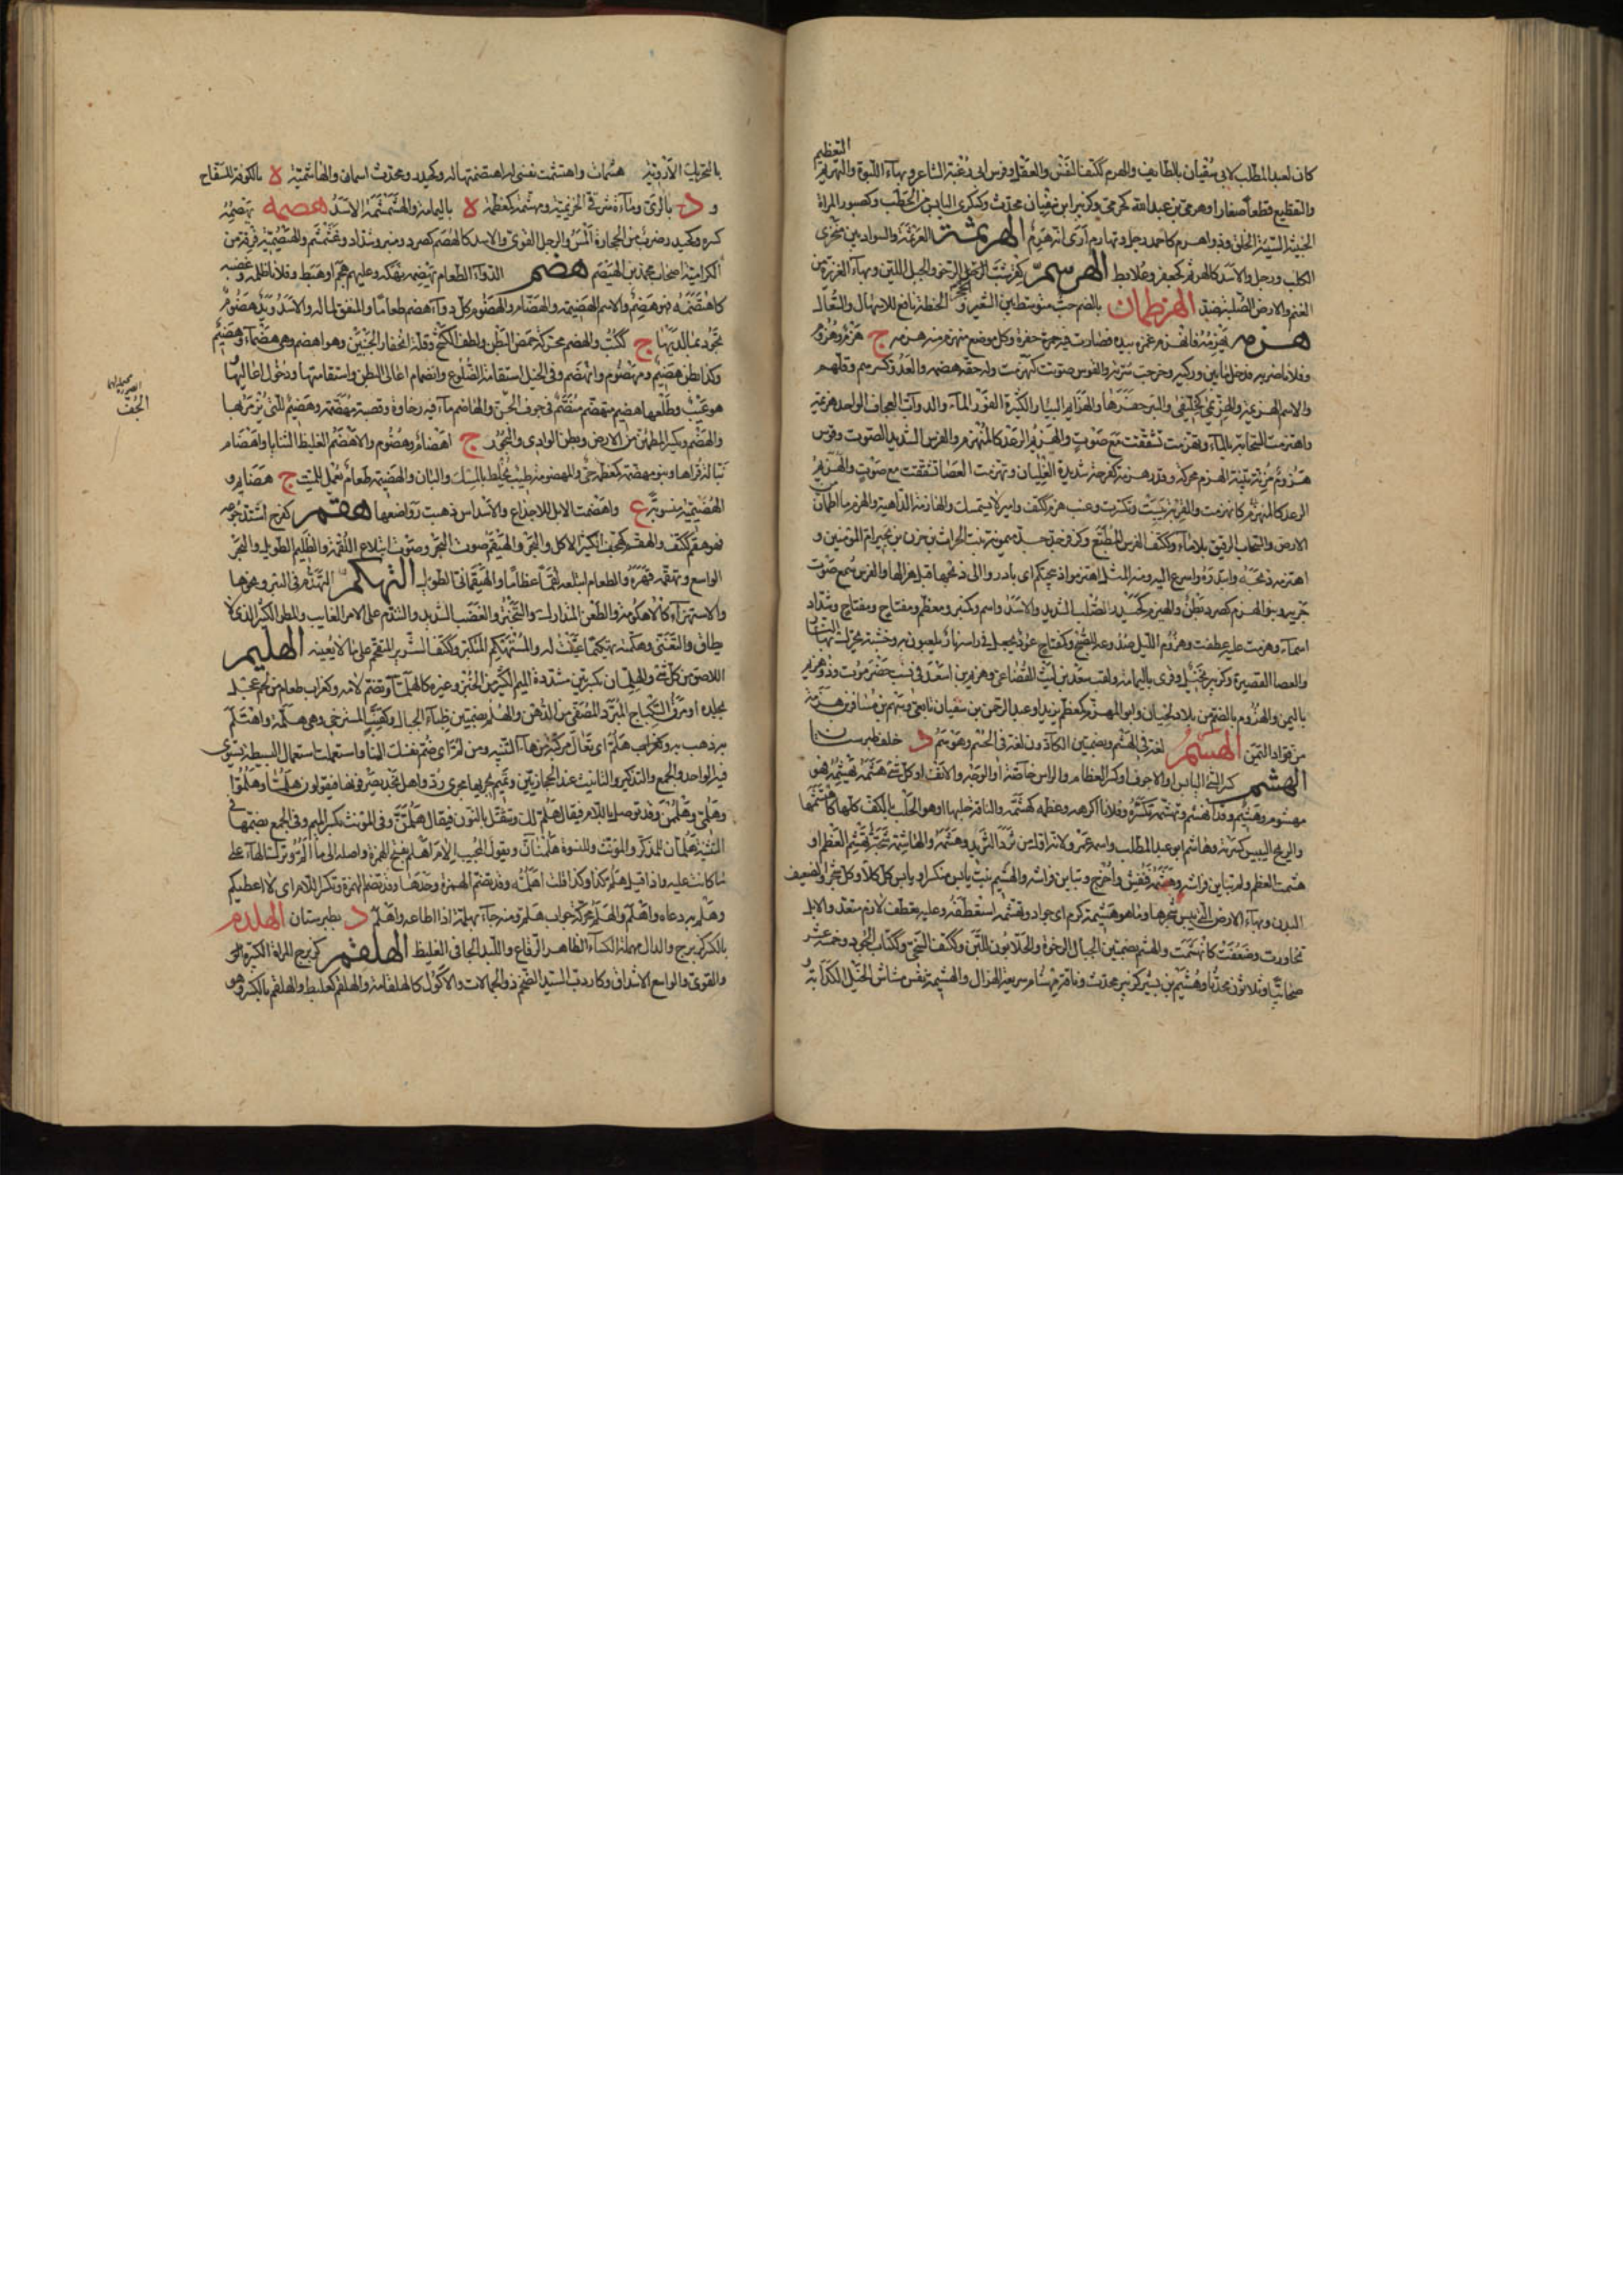 التعظيم
كان لعبد المطلب لابي سفيان بالطايف والهرم ككتف النفس والعقل وفرس ابي زعنة الشاعر وبهاء اللبوة والتهريم
والتقطيع قطعا صغارا وهرمي بن عبد الله كحرمي وكزبير ابن سفيان محدث وكسكرى اليابس من الحطب وكصبور المراة
الخبيثة السيئة الخلق وذو اهرم كاحمد رجل وتهارم ارى انه هرم الهرثمة العرتمة والسواد بين منخري
الكلب ورجل والاسد كالهرثم كجعفر وعلابط الهرشم كقرشب الرخو والجبل اللين وبهاء الغزيرة من
الغنم والارض الصلبة ضد الهرطمان بالضم حب متوسط بين الشعير والحنطة نافع للاسهال والسعال
هزمه يهزمه فانهزم غمزه بيده فصارت فيه حفرة وكل موضع منهزم منه هزمة ج هزم وهزوم
وفلانا ضربه فدخل ما بين وركيه وخرجت سرته والقوس صوتت كتهزمت وله حقه هضمه والعدو كسرهم وفلهم
والاسم الهزيمة والهزيمى كخليفى والبير حفرها والهزايم البئار الكثيرة الغزر الماء والدواب العجاف الواحد هزيمة
واهتزمت السحابة بالماء وتهزمت تشققت مع صوت والهزيم الرعد كالمتهزم والفرس الشديد الصوت وقوس
هزوم مرنة بينة الهزم محركة وقدر هزمة كفرحة شديدة الغليان وتهزمت العصا تشققت مع صوت والهزيم
الرعد كالمتهزم كانهزمت والقربة يبست وتكسرت وغيث هزم ككتف وامير لا يستمسك والهازمة الداهية والهزم ما اطمان من
الارض والسحاب الرقيق بلا ماء وككتف الفرس المطيع وكزفر جد جد ميمونة بنت الحارث بن حزن بن بجير ام المؤمنين و
اهتزمه ذبحه وابتدره واسرع اليه ومنه المثل اهتزموا ذبيحتكم اي بادروا الى ذبحها قبل هزالها والفرس سمع صوت
جريه وبنو الهزم كصرد بطن والهيزم كحيدر الصلب الشديد والاسد واسم وكمنبر ومعظم ومفتاح وشداد
اسماء وهزمت عليه عطفت وهزوم الليل صدوعه للصبح وكمفتاح عود يجعل في راسه نار يلعبون به وخشبة يحرك بها النار
والعصا القصيرة وكزبير نخيل وقرى باليمامة ولقب سعد بن ليث القضاعي وهزيم بن اسعد في نسب حضرموت وذو هزيم
باليمن والهزوم بالضم من بلاد لحيان وابو المهزم كمعظم يزيد او عبد الرحمن بن سفيان تابعي وسهم بن مسافر بن هزمة
من قواد اليمن الهسم لغة في الهشم وبضمتين الكاوون لغة في الحسم وهوسم د خلف طبرستان
الهشم كسر الشيء اليابس او الاجوف او كسر العظام والراس خاصة او الوجه والانف او كل شيء هشمه يهشمه فهو
مهشوم وهشيم وقد انهشم وتهشم وتهشمه كسره وفلانا اكرمه وعظمه كهشمه والناقة حلبها او هو الحلب بالكف كلها كاهتشمها
والريح اليبيس كسرته وهاشم ابو عبد المطلب واسمه عمرو لانه اول من ثرد الثريد وهشمه والهاشمة شجة تهشم العظم او
هشمت العظم ولم يتباين فراشه او هشمته فنقش واخرج وتباين فراشه والهشيم نبت يابس متكسر او يابس كل كلا وكل شجر والضعيف
البدن وبهاء الارض التي يبس شجرها وما هو الا هشيمة كرم اي جواد وتهشمه استعطفه وعليه تعطف لازم متعد والابل
تخاورت وضعفت كانهشمت والهشم بضمتين الجبال الرخوة والحلابون اللبن وككتف السخي وككتاب الجود وخمسة عشر
صحابيا وثلاثون محدثا وهشيم بن بشير كزبير محدث وناقة مهشام سريعة الهزال والهشيمة
بالتحريك الاروية هشمات واهتشمت نفسي له اهتضمتها له وكحيدر ومحدث اسمان والهاشمية ه بالكوفة للسفاح
و د بالري وماءة شرقي الخزيمية ومهشمة كمعظمة ه باليمامة والهشمشمة الاسد هصمه يهصمه
كسره وكحيدر ضرب من الحجارة املس والرجل القوي والاسد كالهصم كصرد ومنبر وشداد وغشمشم والهيصمية فرقة من
الكرامية اصحاب محمد بن الهيصم هضم الدواء الطعام يهضمه نهكه وعليهم هجم او هبط وفلانا ظلمه وغصبه
كاهتضمه وتهضمه فهو هضيم والاسم الهضيمة والهضام والهضوم كل دواء هضم طعاما والمنفق لماله والاسد ويد هضوم
تجود بما لديها ج ككتب والهضم محركة خمص البطن ولطف الكشح وقلة انجفار الجنبين وهو اهضم وهي هضماء وهضيم
وكذا بطن هضيم ومهضوم واهضم وفي الخيل استقامة الضلوع وانضمام اعالي البطن واستقامتها ودخول اعاليها
هو عيب وطلعها هضيم منهضم منضم في جوف الجف والهاضم ماء فيه رخاوة وقصبة مهضمة وهضيم للتي يزمر بها
والهضم ويكسر المطمئن من الارض وبطن الوادي والبخور ج اهضام وهضوم والاهضم الغليظ الثنايا واهضام
تبالة قراها وبنو مهضمة كمعظمة حي والمهضومة طيب يخلط بالمسك والبان والهضيمة طعام يعمل للميت ج هضايم و
الهضيمية منسوبة ع واهضمت الابل للاجذاع والاسداس ذهبت رواضعها هقم كفرح اشتد جوعه
فهو هقم ككتف والهقم كهجف الكثير الاكل والبحر والهيقم صوت البحر وصوت ابتلاع اللقمة والظليم الطويل والبحر
الواسع وتهقمه قهره والطعام ابتلعه لقما عظاما والهيقماني الطويل التهكم التهدم في البير ونحوها
والاستهزاء كالاهكومة والطعن المتدارك والتبختر والغضب الشديد والتندم على الامر الفايت والمطر الكثير الذي لا
يطاق والتغني وهكمته تهكيما غنيت له والمستهتكم المتكبر وككتف الشرير المتقحم على ما لا يعنيه الهليم
اللاصق من كل شيء والهلمان بكسرتين مشددة الميم الكثير من الخير وغيره كالهلماء وتضم لامه وكغراب طعام من لحم عجلة
بجلده او مرق السكباج المبرد المصفى من الدهن والهلم بضمتين ظباء الجبال وكهجف المسترخي وهي هلمة واهتلم
به ذهب به وكغراب هلم اي تعال مركبة من ها التنبيه ومن لم اي ضم نفسك الينا واستعملت استعمال البسيطة يستوي
فيه الواحد والجمع والتذكير والتانيث عند الحجازيين وتميم تجريها مجرى رد واهل نجد يصرفونها فيقولون هلما وهلموا
وهلمي وهلممن وقد توصل باللام فيقال هلم لك وتثقل بالنون فيقال هلمن وفي المؤنث بكسر الميم وفي الجمع بضمها
التثنية هلمان للمذكر والمؤنث وللنسوة هلممنان ويقول المجيب الام اهلم بفتح الهمزة واصله الى ما الم وتركت الهاء على
ما كانت عليه واذا قيل هلم كذا وكذا قلت اهلمه وقد تضم الهمزة وحدها وقد تضم الهمزة وتكسر اللام اي لا اعطيكم
وهلم به دعاه واهلم والهلم محركة جواب هلم ومنه جاءه بهلمة اذا اطاعه واهلم د بطبرستان الهلدم
بالكسر كزبرج والدال مهملة الكساء الظاهر الرقاع واللبد الجافي الغليظ الهلقم كزبرج المراة الكبيرة
والقوي والواسع الاشداق وكاردب السيد الضخم ذو الحمالات والاكول كالهلقامة والهلقم كعلبط والهلقم بالكسر هو
الجف